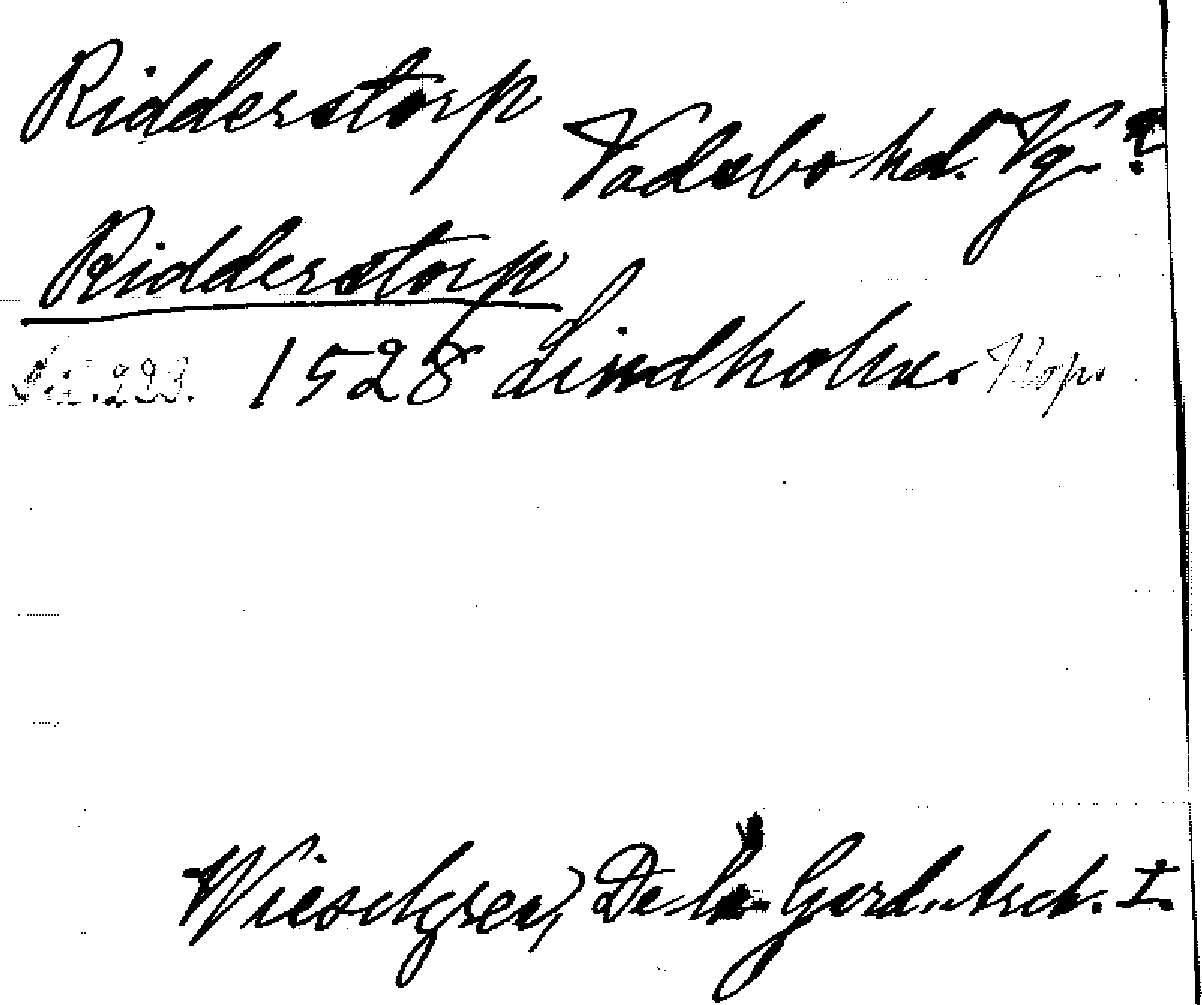 Ridderstorp Vadsbo hd. Vg. ?
Ridderstorp
1528 Lindholm. Kop.
Wieselgren, De la Gard. Arch. I.